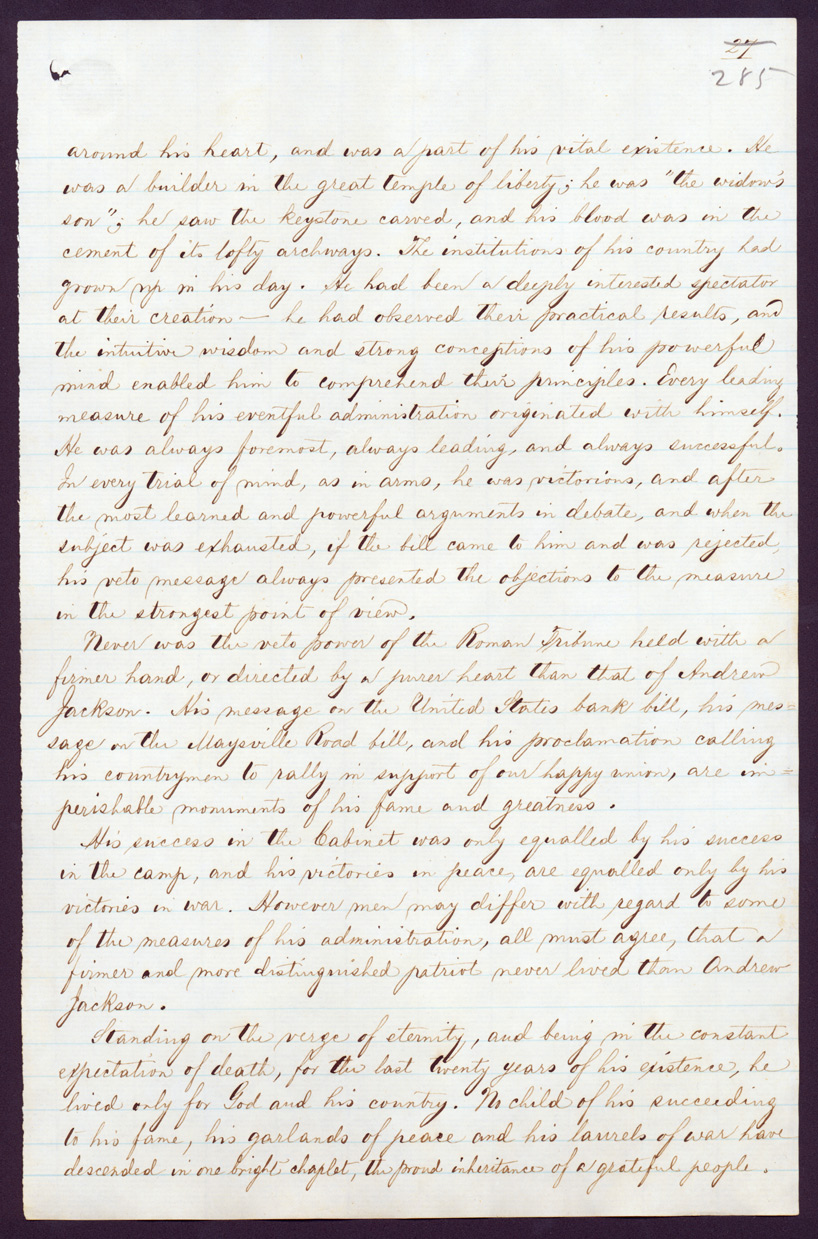 27
285
around his heart, and was a part of his vital existence. He
was a builder in the great temple of liberty; he was "the widow's
son"; he saw the keystone carved, and his blood was in the
cement of its lofty archways. The institutions of his country had
grown up in his day. He had been a deeply interested spectator
at their creation — he had observed their practical results, and
the intuitive wisdom and strong conceptions of his powerful
mind enabled him to comprehend their principles. Every leading
measure of his eventful administration originated with himself.
He was always foremost, always leading, and always successful.
In every trial of mind, as in arms, he was victorious, and after
the most learned and powerful arguments in debate, and when the
subject was exhausted, if the bill came to him and was rejected,
his veto message always presented the objections to the measure
in the strongest point of view.
Never was the veto power of the Roman Tribune held with a
firmer hand, or directed by a purer heart than that of Andrew
Jackson. His message on the United States bank bill, his mes=
sage on the Maysville Road bill, and his proclamation calling
his countrymen to rally in support of our happy union, are im=
perishable monuments of his fame and greatness.
His success in the Cabinet was only equalled by his success
in the camp, and his victories in peace, are equalled only by his
victories in war. However men may differ with regard to some
of the measures of his administration, all must agree, that a
firmer and more distinguished patriot never lived than Andrew
Jackson.
Standing on the verge of eternity, and being in the constant
expectation of death, for the last twenty years of his existence, he
lived only for God and his country. No child of his succeeding
to his fame, his garlands of peace and his laurels of war have
descended in one bright chaplet, the proud inheritance of a grateful people.